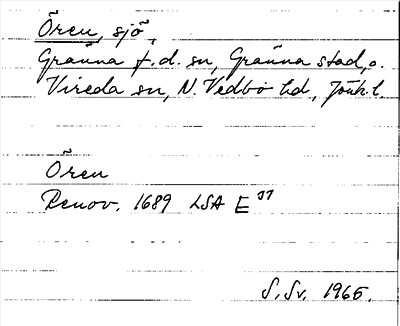 Ören, sjö,
Gränna f.d. sn, Gränna stad, o.
Vireda sn, N. Vedbo hd, Jönk. l.
Ören
Renov. 1689 LSA E 37
S. Sv. 1965.